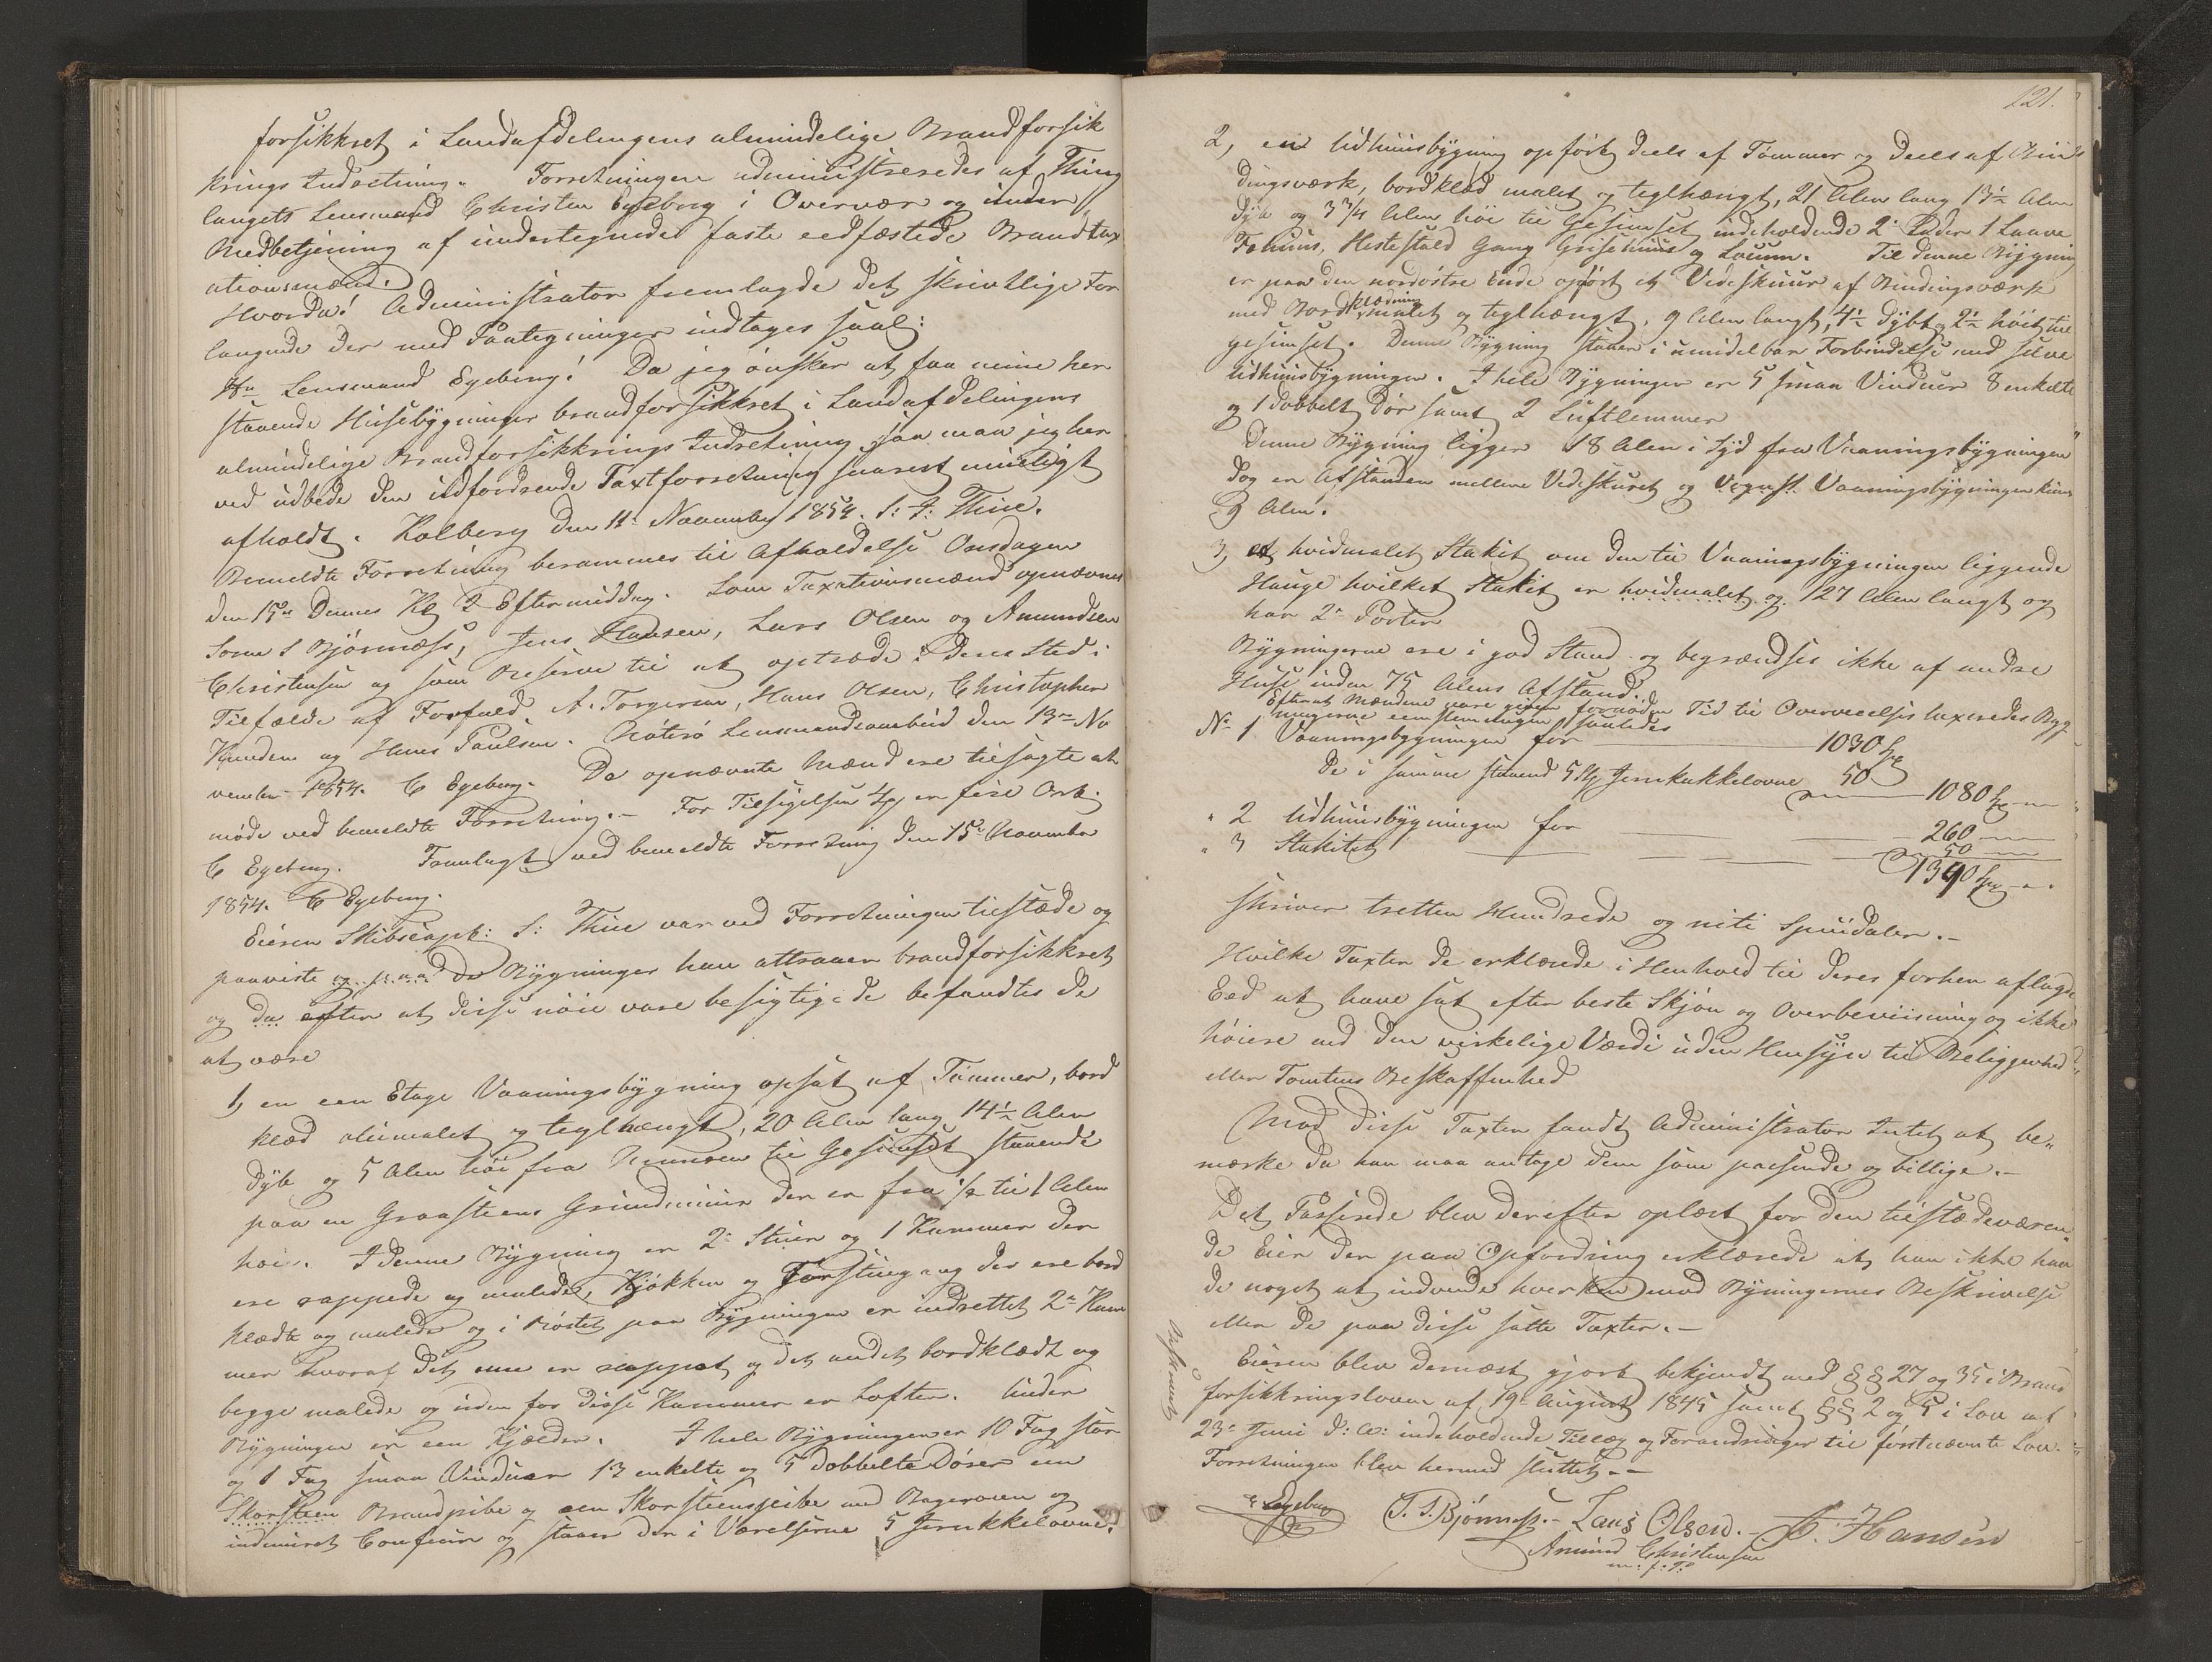 forsikkret i Landafdelingens almindelige Brandforsik
krings Indretning. Forretningen administreredes af Thing
laugets Lensmand Christen Egeberg i Overvær og under
Medbetjening af undertegnede faste eedfæstede Brandtax
ationsmænd.
Hvorda! Administrator fremlagde det skrivtlige For
langende der med Paategninger indtages saal:
Hr Lensmand Egeberg! Da jeg ønsker at faa mine her
staaende Huusebygninger brandforsikkret i Landafdelingens
almindelige Brandforsikkrings Indretning saa maa jeg her
ved udbede den udfordrende Taxtforretning snarest mueligt
afholdt. Kolberg den 11te November 1854. S: A: Thue.
Bemeldte Forretning berammes til Afholdelse Onsdagen
den 15de Dennes Kl 2 Eftermiddag. Som Taxationsmænd opnævnes
Søren S Bjørnæss, Jens Hansen, Lars Olsen og Amundsen
Christensen og som Reserve til at optræde i deres Sted i
Tilfælde af Forfald A. Torgersen, Hans Olsen, Christopher
Knudsen og Hans Paulsen. Nøterø Lensmandsombud den 13de No
vember 1854. C Egeberg. De opnævnte Mænd ere tilsagte at
møde ved bemeldte Forretning.- For Tilsigelsen 4 er fire Ort.
C Egeberg. Fremlagt ved bemeldte Forretning den 15de November
1854. C Egeberg.
Eieren Skibscapt: S: Thue var ved Forretningen tilstæde og
paaviste og paa de Bygninger han attraaer brandforsikkret
og da efter at disse nøie vare besigtigede befandtes de
at være
1, en een Etage Vaaningsbygning opsat af Tømmer, bord
klæd oliemalet og teglhængt, 20 Alen lang 14½ Alen
dyb og 5 Alen høi fra Muuren til Gesimset staaende
paa en Graasteens Grundmuur der er fra ½ til 1 Alen
høi. I denne Bygning er 2de Stuer og 1 Kammer der
ere rappede og malede, Kjøkken og Forstuegang der ere bord
klædte og malede og i Røstet paa Bygningen er indrettet 2de Kam
mer hvoraf det ene er rappet og det andet bordklædt og
begge malede og uden for disse Kammer er Lofter. Under
Bygningen er een Kjælder. I hele Bygningen er 10 Fag stør
og 1 Fag smaa Vinduer 13 enkelte og 5 dobbelte Døre een
Skorsteen Brandpibe og een Skorsteenspibe med Bagerovn og
indmuret Comfuur og staaer der i Værelserne 5 Jernkkelovne.
121.
2, en Udhuusbygning opført deels af Tømmer og deels af Bin
dingsværk, bordklæd malet og teglhængt, 21 Alen lang 13½ Alen
dyb og 3¾ Alen høi til Gesimset indeholdende 2de Lader 1 Laave
Fæhuus, Hestestald Gang Grisehuus og Locum. Til denne Bygning
er paa den nordøstre Ende opført et Vedeskuur af Bindingsværk
med Bordklædning malet og teglhængt, 9 Alen langt, 4½ dybt og 2½ høit til
gesimset. Denne Bygning staaer i umidelbar Forbindelse med selve
Udhuusbygningen. I hele Bygningen er 5 smaa Vinduer 8 enkelte
og 1 dobbelt Dør samt 2 Luftlemmer
Denne Bygning ligger 18 Alen i Syd fra Vaaningsbygningen
dog er Afstanden mellem Vedskuret og Vaaningsbygningen kun
9 Alen.
3, et hvidmalet Stakit om den til Vaaningsbygningen liggende
Hauge hvilket Stakit er hvidmalet og 127 Alen langt og
har 2de Porter
Bygningerne ere i god Stand og begrændses ikke af andre
Huse inden 75 Alens Afstand.
Efterat Mændene vare given fornøden Tid til Overveielse taxeredes Byg
ningerne eenstemmigen saaledes
No 1 Vaaningsbygningen for 1030 Spd
De i samme staaend 5 St Jernkakkelovne 50
1080 Spd
" 2 Udhuusbygningen for 260
" 3 Stakitet 50
1390 Spd
skriver tretten Hundrede og niti Speciedaler.-
Hvilke Taxter de erklærede i Henhold til deres forhen aflagte
Eed at have sat efter beste Skjøn og Overbeviisning og ikke
høiere end den virkelige Værdi uden Hensyn til Beliggenhed
eller Tomtens Beskaffenhed
Mod disse Taxter fandt Administrator Intet at be„
mærke da han maa antage dem som passende og billige.-
Det Passerede blev derefter oplæst for den tilstædeværen„
de Eier der paa Opfordring erklærede at han ikke hav
de noget at indvende hverken mod Bygningernes Beskrivelse
eller de paa disse satte Taxter.-
Eieren blev dernæst gjort bekjendt med §§ 27 og 35 i Brand
forsikkringsloven af 19de August 1845 samt §§ 2 og 5 i Lov af
23de Juni d: A: indeholdende Tillæg og Forandringer til førstnævnte Lov.
Forretningen blev hermed sluttet.-
Beskrevet
C Egeberg S. S. Bjørnæss.- Lars Olsen.- J. Hansen
Amund Christensen
m. f. P.